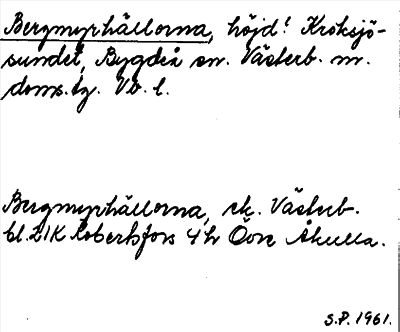 Bergmyrhällorna, höjd! Kroksjö-
sundet, Bygdeå sn. Västerb. m.
doms.tg. Vb. l.
Bergmyrhällorna, ek. Västerb.
bl. 21K Robertsfors 4h Övre Åkulla.
S.P. 1961.